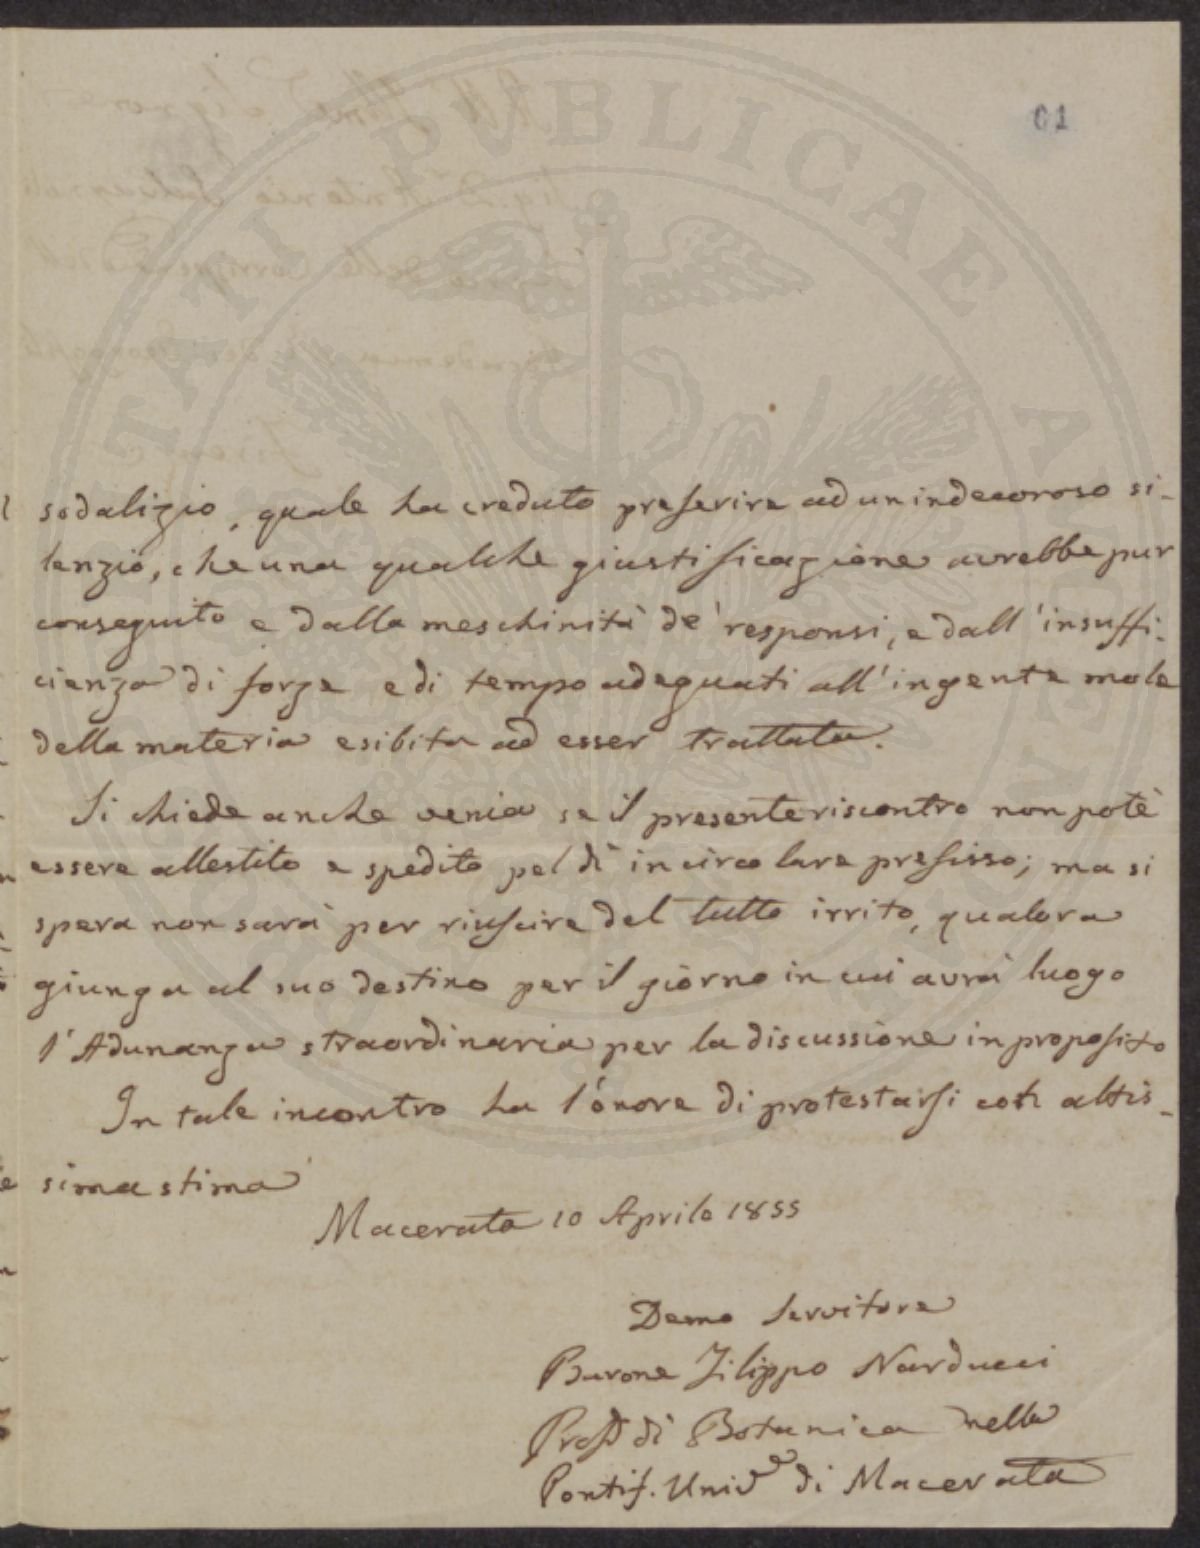 61
sodalizio, quale ha creduto preferire ad un indecoroso si-
lenzio, che una qualche giustificazione avrebbe pur
conseguito e dalla meschinità de' responsi, e dall'insuffi-
cienza di forze e di tempo adeguati all'ingente mole
della materia esibita ad esser trattata.
Si chiede anche venia se il presente riscontro non potè
essere allestito e spedito pel dì in circolare prefisso; ma si
spera non sarà per riuscire del tutto irrito, qualora
giunga al suo destino per il giorno in cui avrà luogo
l'Adunanza straordinaria per la discussione in proposito
In tale incontro ha l'onore di protestarsi con altis-
sima stima
Macerata 10 Aprile 1855
Demo Servitore
Barone Filippo Narducci
Prof di Botanica nella
Pontif. Univ di Macerata
PUBLICAE